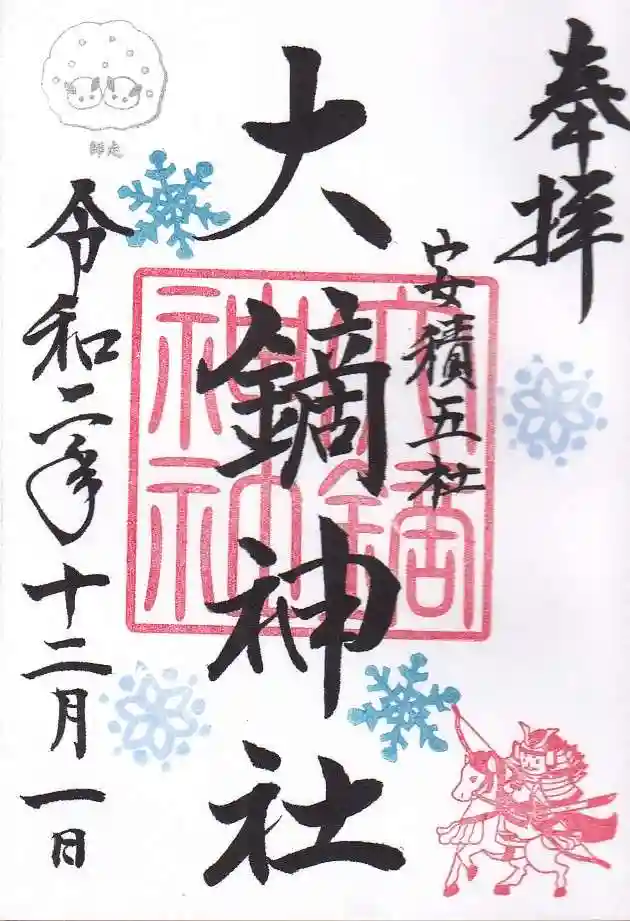 奉拝
安積五社
大鏑神社
大鏑神社
令和二年十二月一日
師走